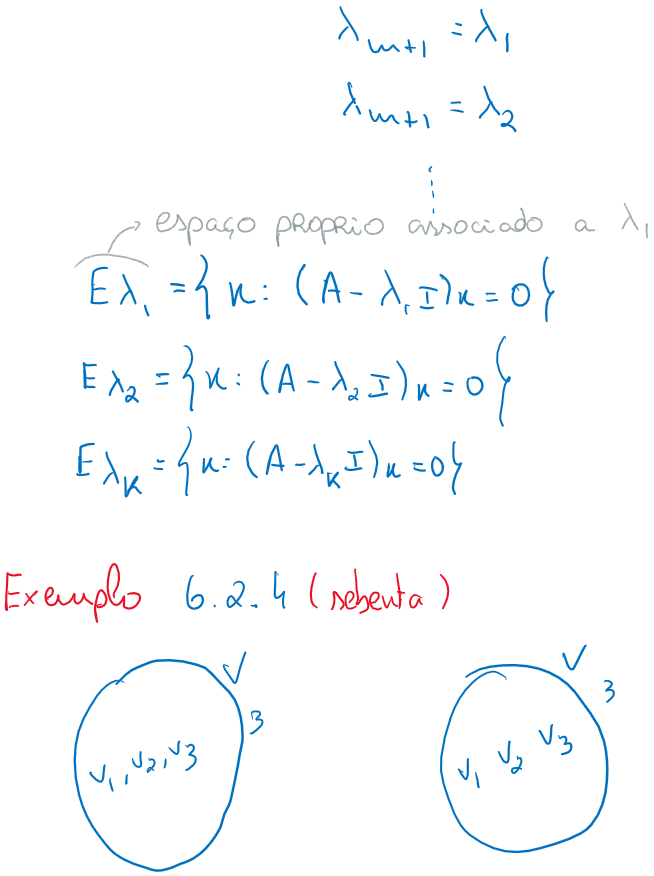 λₘ₊₁ = λ₁
λₘ₊₁ = λ₂
espaço PROPRIO associado a λ₁
Eλ₁ = { x : (A - λ₁I)x = 0 }
Eλ₂ = { x : (A - λ₂I)x = 0 }
Eλₖ = { x : (A - λₖI)x = 0 }
Exemplo 6.2.4 (sebenta)
V V
3 3
v₁, v₂, v₃ v₁ v₂ v₃